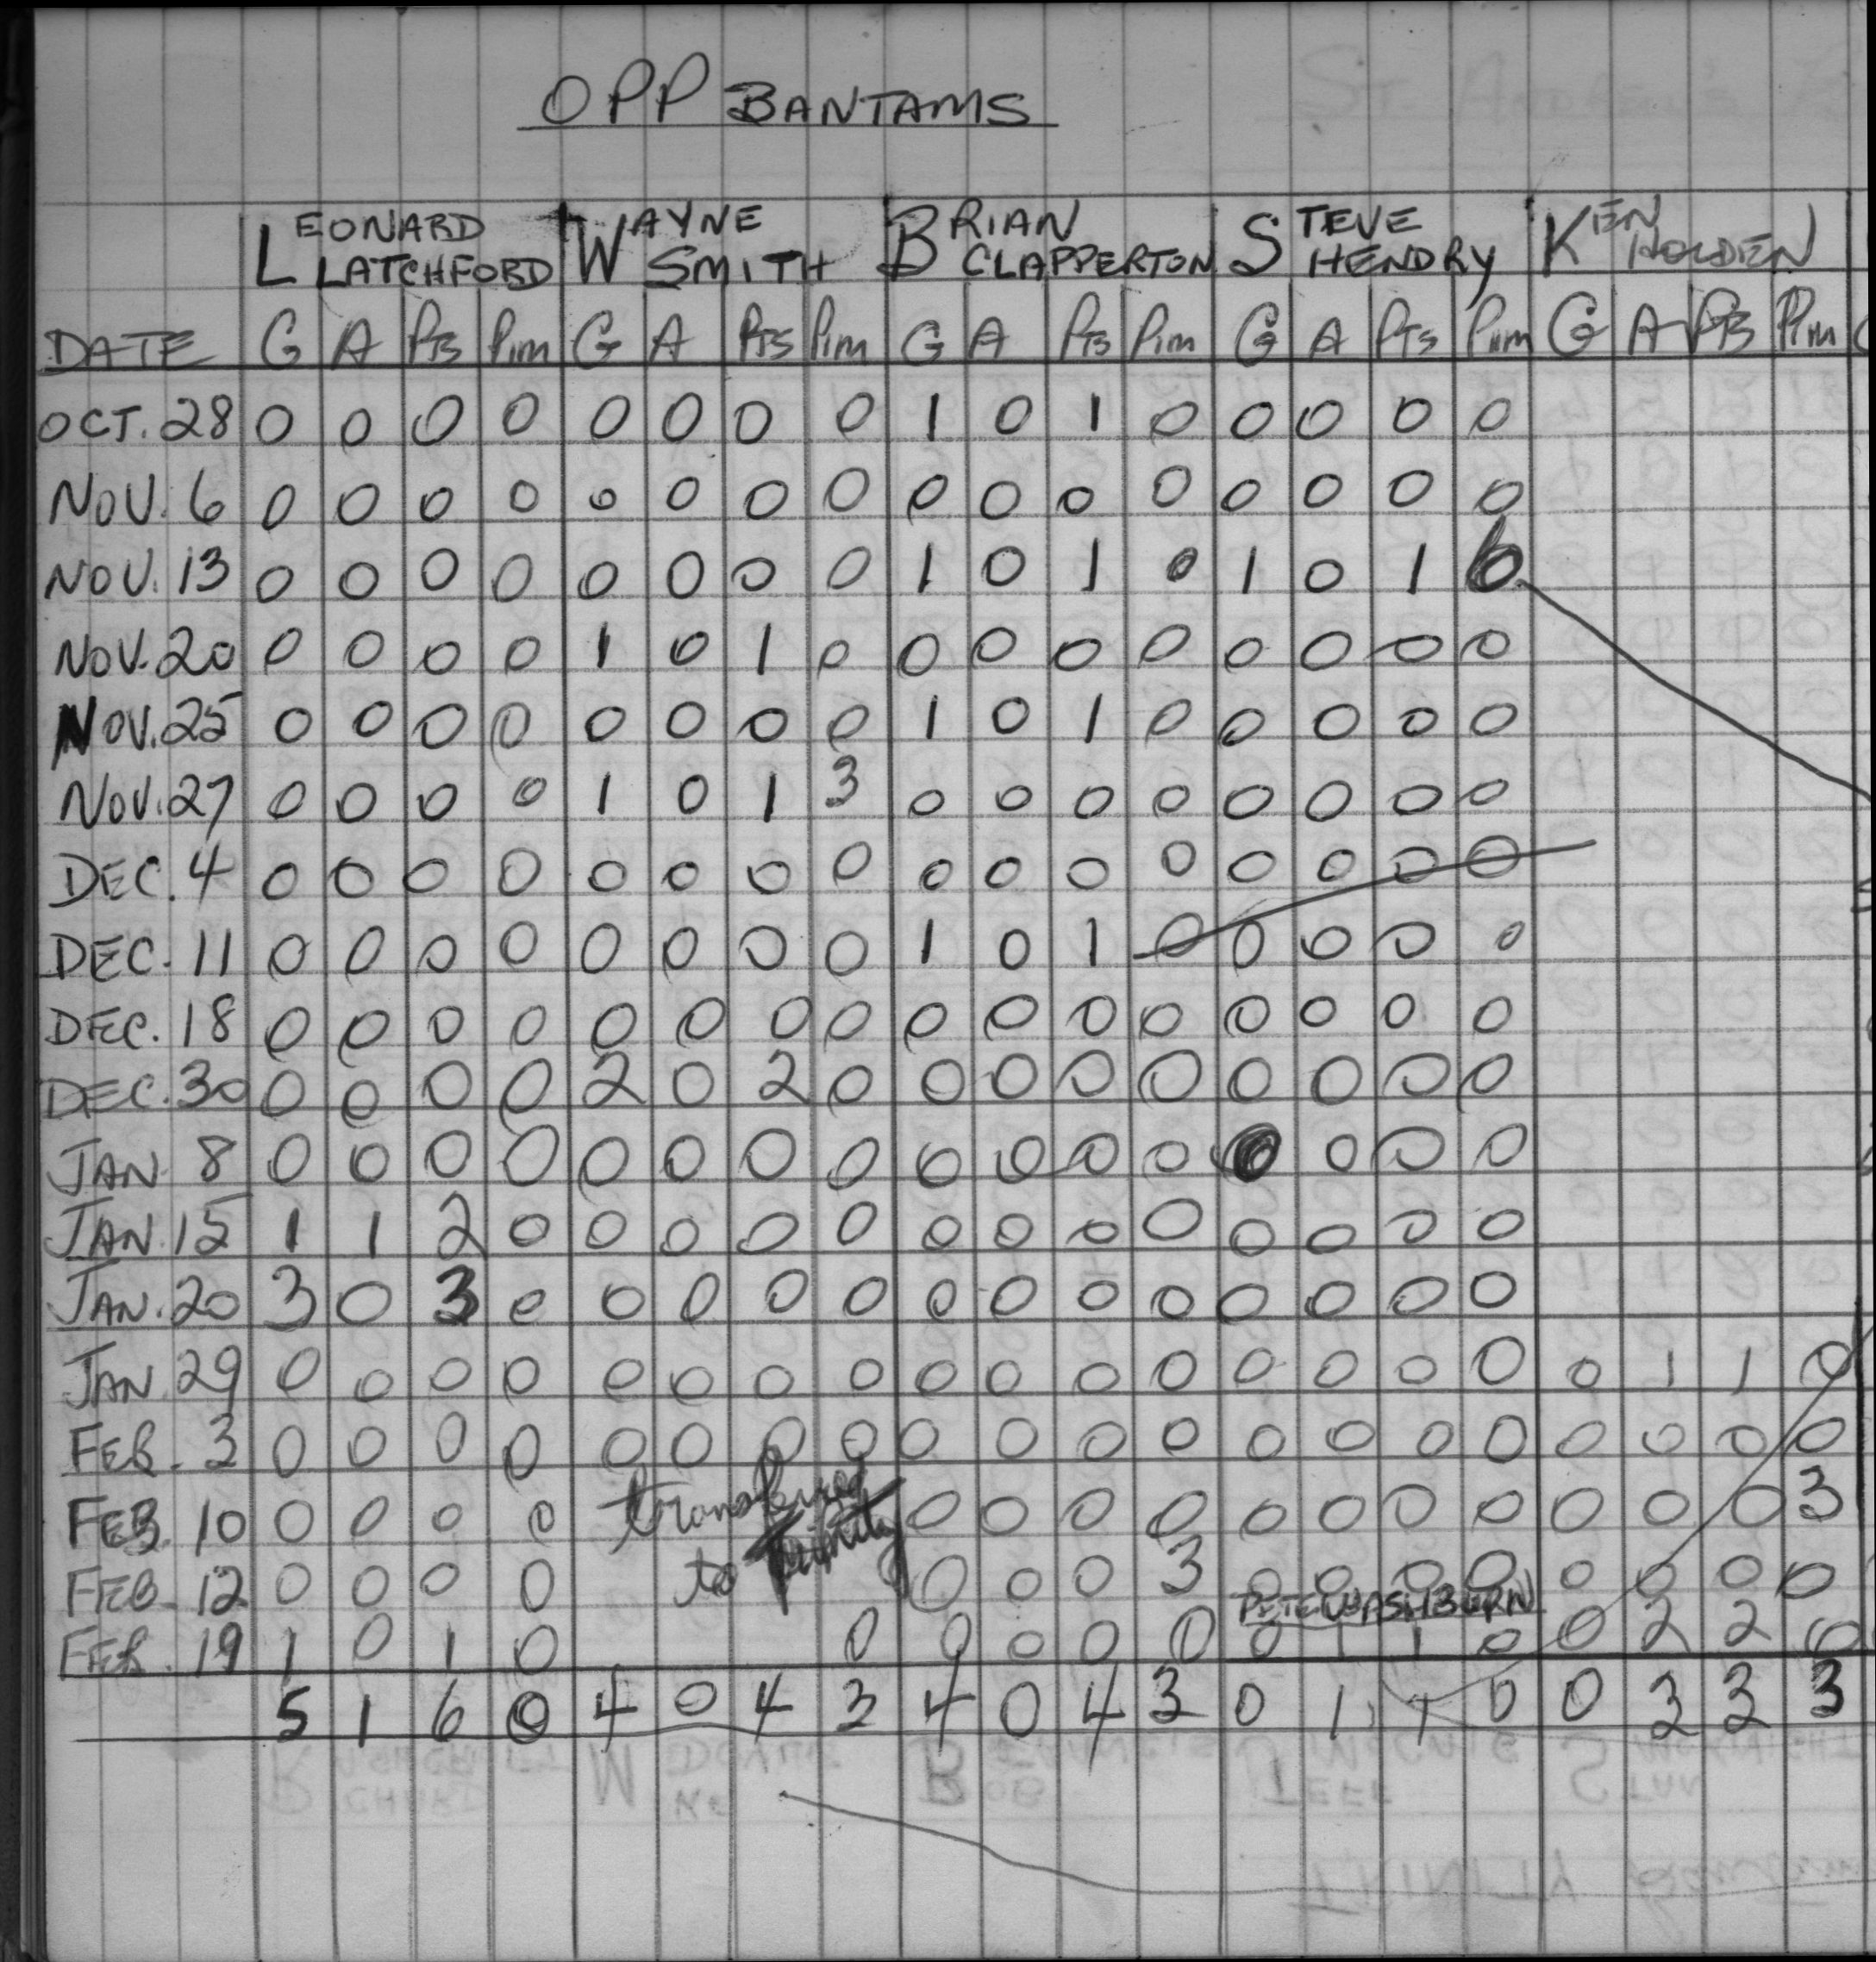 OPP BANTAMS
LEONARD LATCHFORD WAYNE SMITH BRIAN CLAPPERTON STEVE HENDRY KEN HOLDEN
DATE G A Pts Pim G A Pts Pim G A Pts Pim G A Pts Pim G A Pts Pim
OCT. 28 0 0 0 0 0 0 0 0 1 0 1 0 0 0 0 0
NOV. 6 0 0 0 0 0 0 0 0 0 0 0 0 0 0 0 0
NOV. 13 0 0 0 0 0 0 0 0 1 0 1 0 1 0 1 6
NOV. 20 0 0 0 0 1 0 1 0 0 0 0 0 0 0 0 0
NOV. 25 0 0 0 0 0 0 0 0 1 0 1 0 0 0 0 0
NOV. 27 0 0 0 0 1 0 1 3 0 0 0 0 0 0 0 0
DEC. 4 0 0 0 0 0 0 0 0 0 0 0 0 0 0 0 0
DEC. 11 0 0 0 0 0 0 0 0 1 0 1 0 0 0 0 0
DEC. 18 0 0 0 0 0 0 0 0 0 0 0 0 0 0 0 0
DEC. 30 0 0 0 0 2 0 2 0 0 0 0 0 0 0 0 0
JAN 8 0 0 0 0 0 0 0 0 0 0 0 0 0 0 0 0
JAN 15 1 1 2 0 0 0 0 0 0 0 0 0 0 0 0 0
JAN. 20 3 0 3 0 0 0 0 0 0 0 0 0 0 0 0 0
JAN 29 0 0 0 0 0 0 0 0 0 0 0 0 0 0 0 0 0 1 1 0
FEB. 3 0 0 0 0 0 0 0 0 0 0 0 0 0 0 0 0 0 0 0 0
FEB. 10 0 0 0 0 transferred 0 0 0 0 0 0 0 0 0 0 0 3
FEB. 12 0 0 0 0 to Trinity 0 0 0 3 0 0 0 0 0 0 0 0
PETER WASHBURN
FEB. 19 1 0 1 0 0 0 0 0 0 0 1 1 0 0 2 2 0
5 1 6 0 4 0 4 3 4 0 4 3 0 1 1 0 0 3 3 3